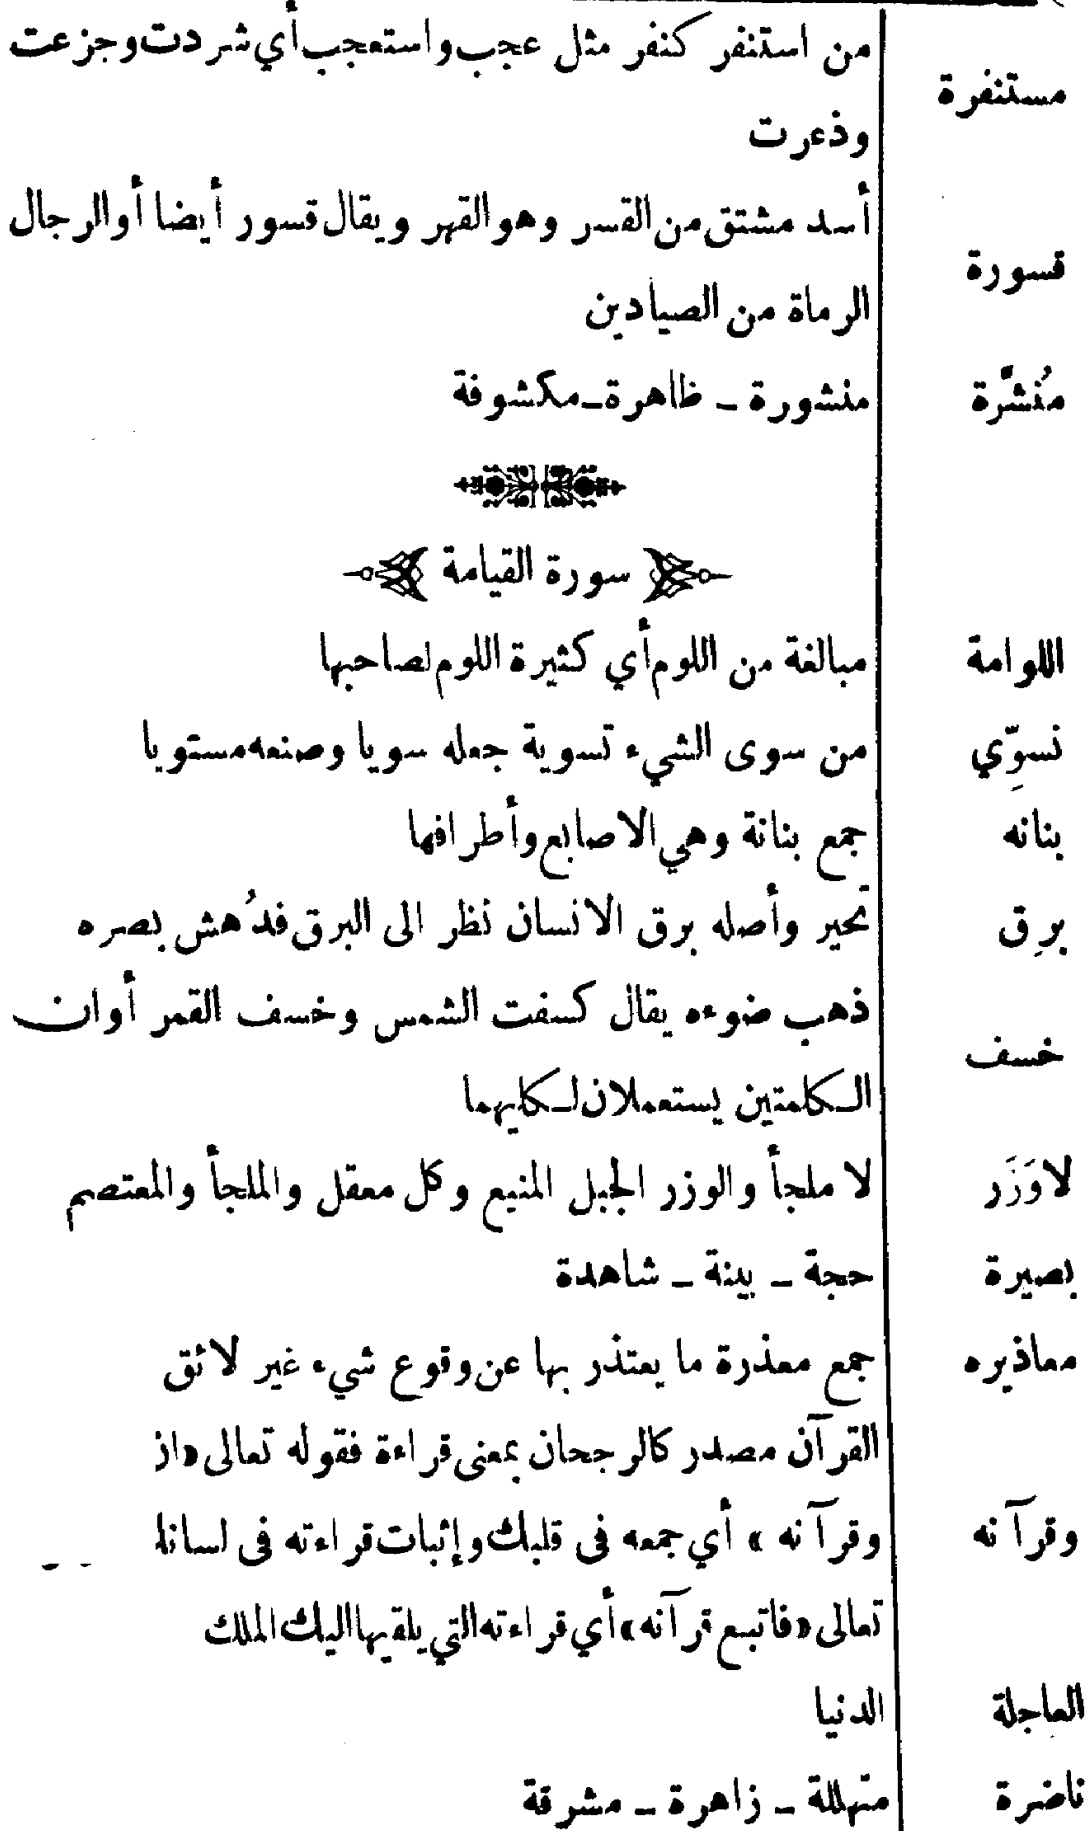 مستنفرة من استنفر كنفر مثل عجب واستعجب أي شردت وجزعت
وذعرت
قسورة أسد مشتق من القسر وهو القهر ويقال قسور أيضا أو الرجال
الرماة من الصيادين
مُنشَّرة منشورة ـ ظاهرة ـ مكشوفة
سورة القيامة
اللوامة مبالغة من اللوم أي كثيرة اللوم لصاحبها
نسوِّي من سوى الشيء تسوية جعله سويا وصنعه مستويا
بنانه جمع بنانة وهي الاصابع وأطرافها
برِق تحير وأصله برق الانسان نظر الى البرق فدُهش بصره
خسف ذهب ضوءه يقال كسفت الشمس وخسف القمر أوان
الكلمتين يستعملان لكليهما
لاوَزَر لا ملجأ والوزر الجبل المنيع وكل معقل والملجأ والمعتصم
بصيرة حجة ـ بينة ـ شاهدة
معاذيره جمع معذرة ما يعتذر بها عن وقوع شيء غير لائق
القرآن مصدر كالرجحان بمعنى قراءة فقوله تعالى «ان
وقرآنه وقرآنه » أي جمعه فى قلبك وإثبات قراءته فى لسانك
تعالى «فاتبع قرآنه» أي قراءته التي يلقيها اليك الملك
العاجلة الدنيا
ناضرة متهللة ـ زاهرة ـ مشرقة